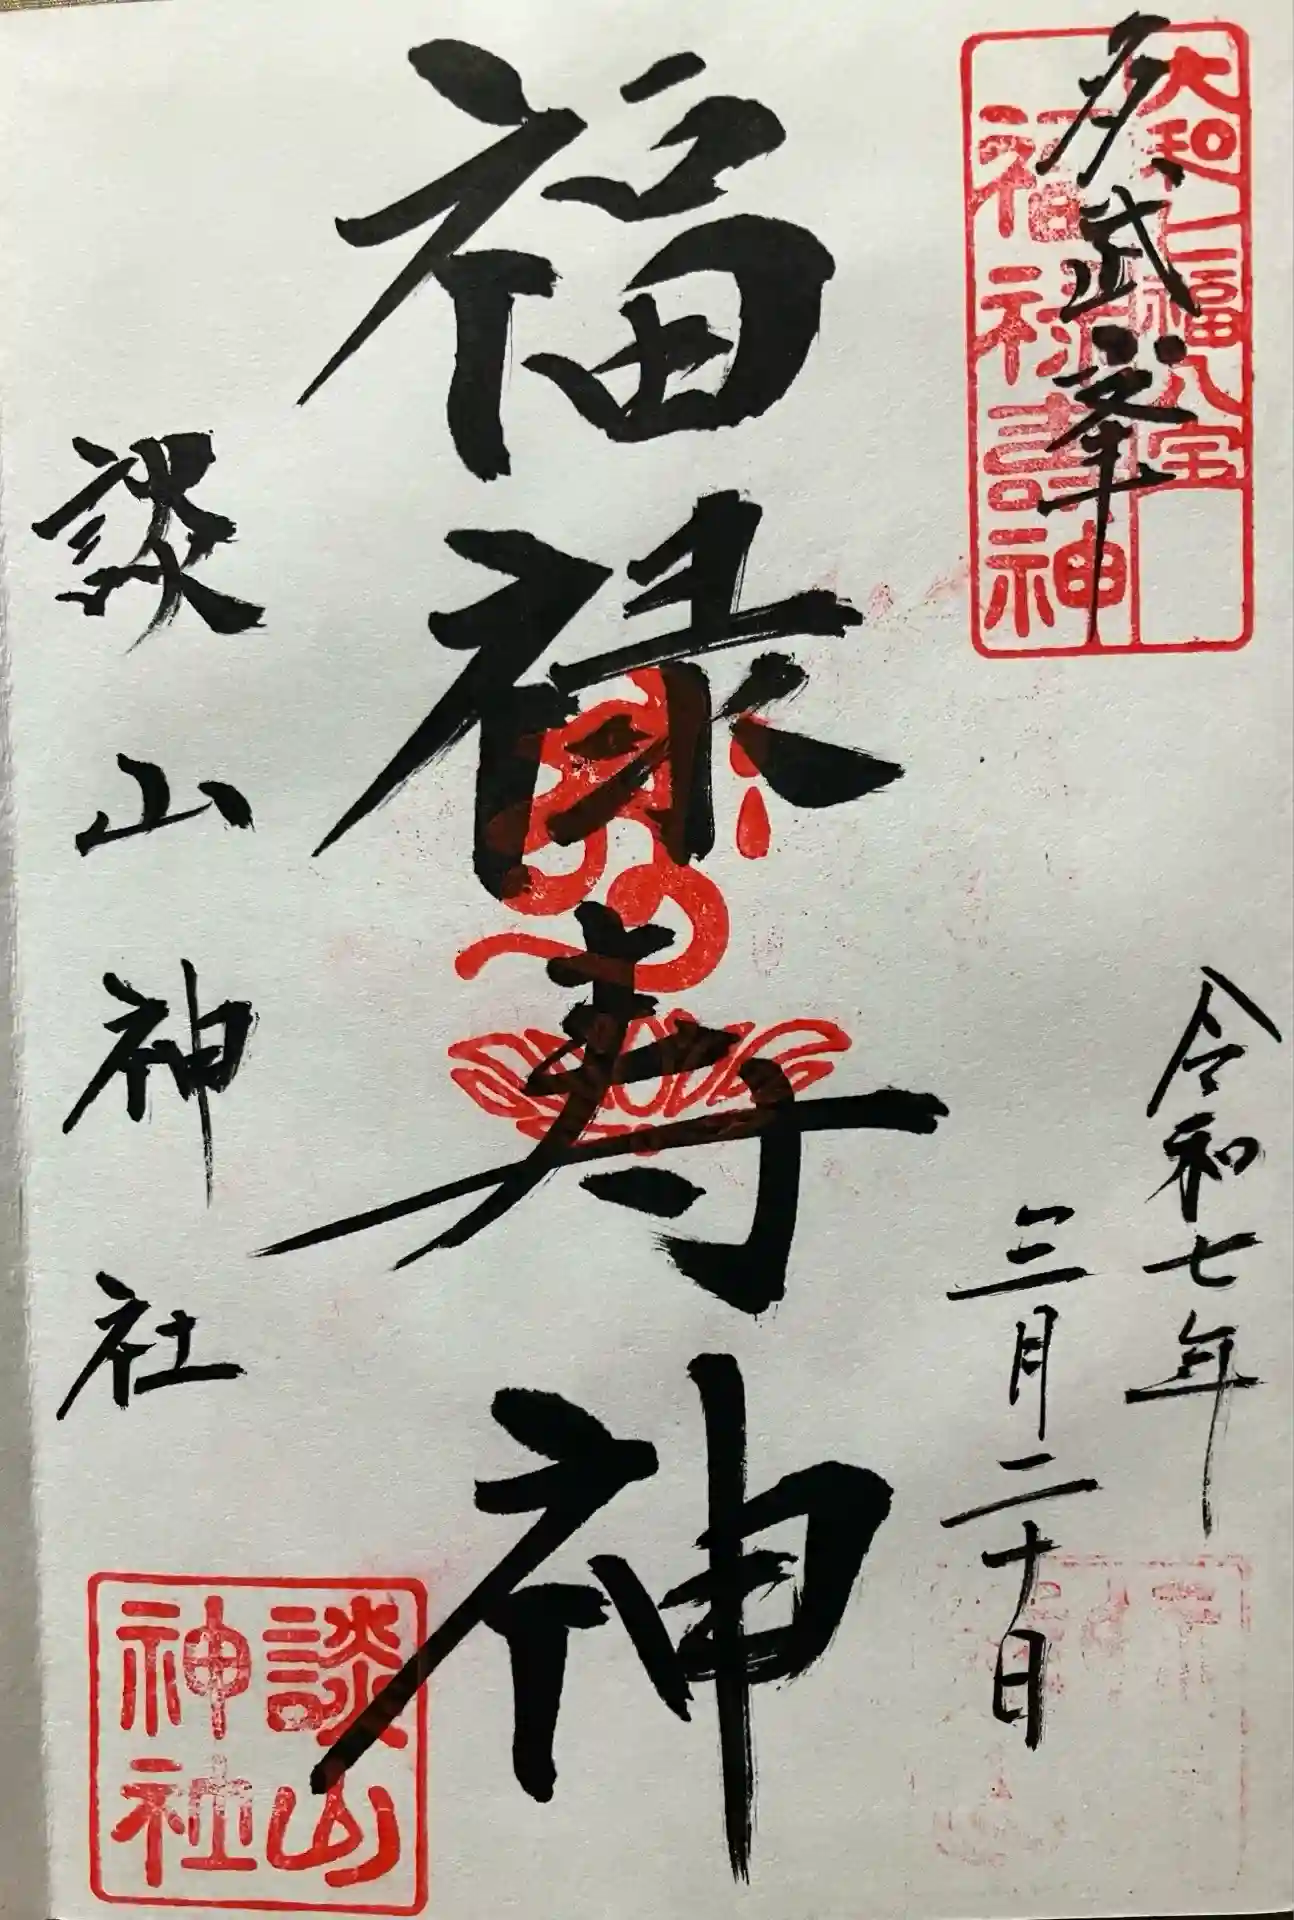 多武峯
大和七福八宝
福禄寿神
福禄寿神
令和七年
三月二十日
談山神社
談山
神社